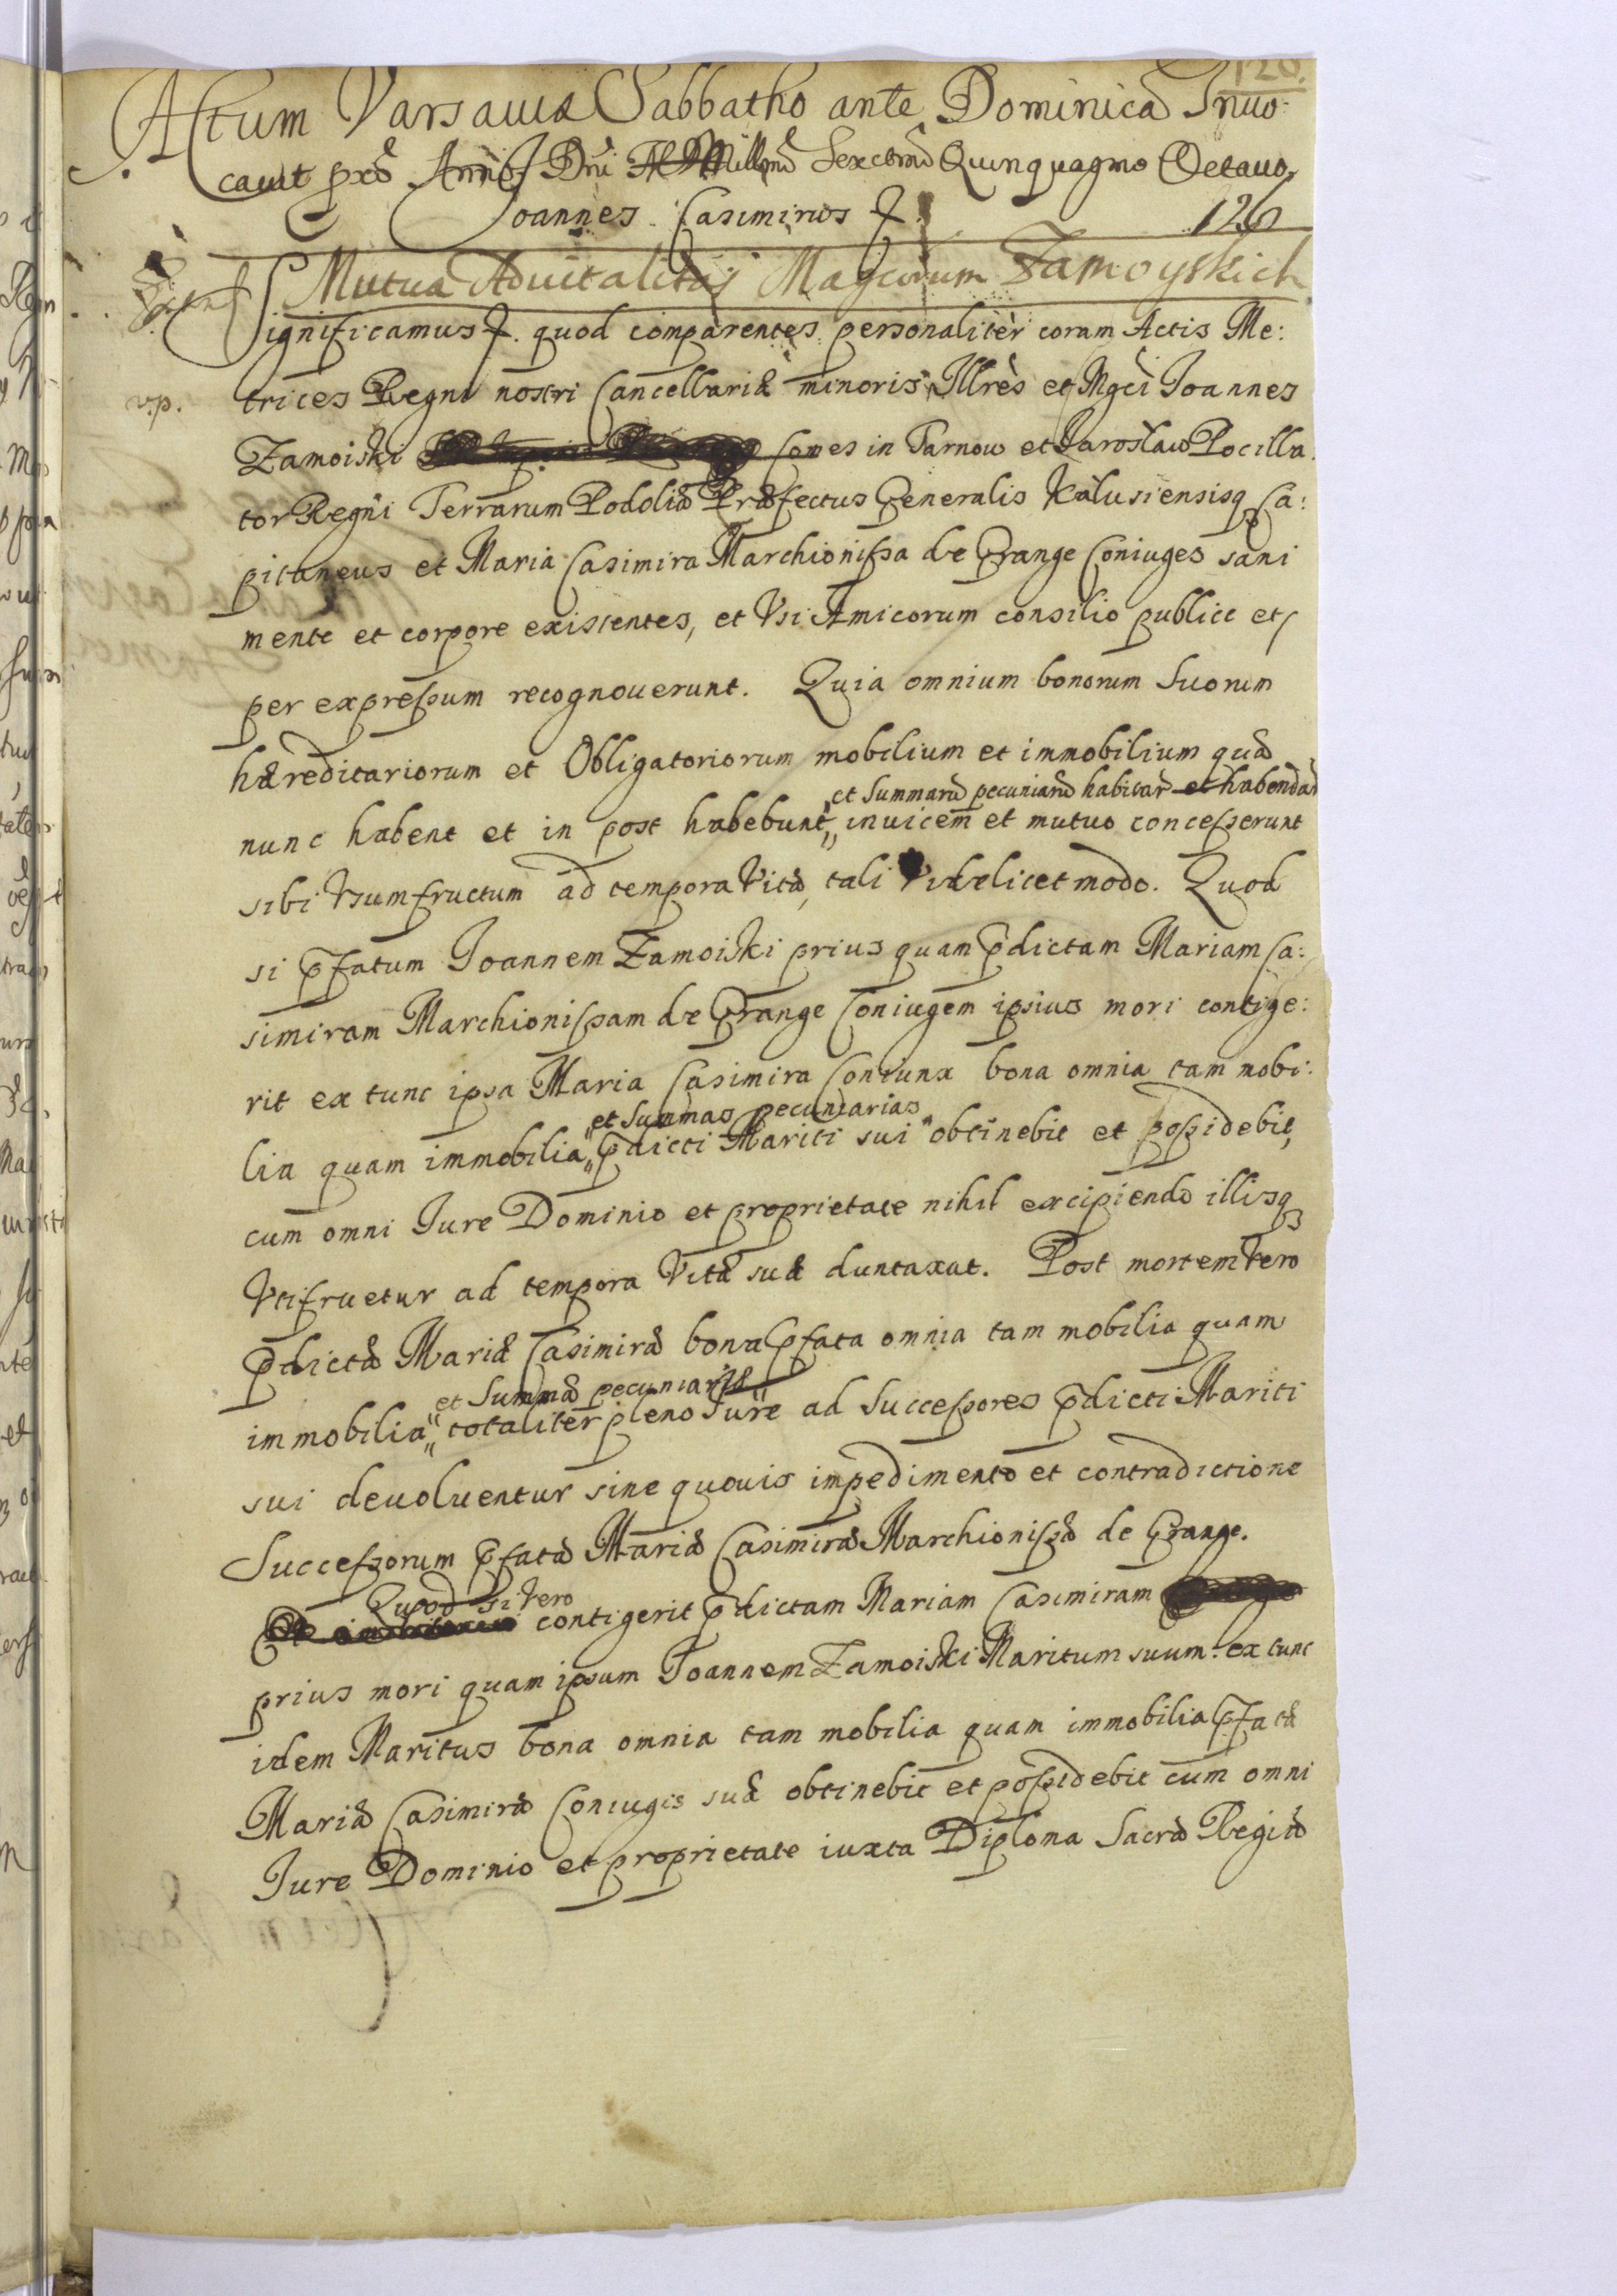 120.
Actum Varsaviæ Sabbatho ante Dominicã Invo-
cavit pxã Anno Dni Millmo Sexctmo Quinquagmo Octavo,
Joannes Casimirus
126
Mutua Advitalitas Magcorum Zamoyskich
Significamus quod comparentes personaliter coram Actis Me:
v.p.
trices Regni nostri Cancellariæ minoris Illres et Mgci Joannes
Zamoiski Comes in Tarnow et Jaroslaw Pocilla
tor Regni Terrarum Podoliæ Præfectus Generalis Kalusiensisq Ca:
pitaneus et Maria Casimira Marchionissa de Grange Coniuges sani
mente et corpore existentes, et Vsi Amicorum consilio publice et
per expressum recognoverunt. Quia omnium bonorum Suorum
hæreditariorum et Obligatoriorum mobilium et immobilium quæ
et Summarũ pecuniarũ habitar et habendar
nunc habent et in post habebunt, invicem et mutuo concesserunt
sibi Vsumfructum ad tempora Vitæ, tali Videlicet modo. Quod
si pfatum Joannem Zamoiski prius quam pdictam Mariam Ca:
simiram Marchionissam de Grange Coniugem ipsius mori contige:
rit ex tunc ipsa Maria Casimira Coniunx bona omnia tam mobi:
et Summas pecuniarias
lia quam immobilia pdicti Mariti sui obtinebit et possidebit,
cum omni Jure Dominio et proprietate nihil excipiendo illisq
Vtifruetur ad tempora Vitæ suæ duntaxat. Post mortem Vero
pdictæ Mariæ Casimiræ bona pfata omnia tam mobilia quam
et Summæ pecuniariæ
immobilia totaliter pleno Jure ad Successores pdicti Mariti
sui devolventur sine quovis impedimento et contradictione
Successorum pfatæ Mariæ Casimiræ Marchionissæ de Grange.
Quod si Vero
contigerit pdictam Mariam Casimiram
prius mori quam ipsum Joannem Zamoiski Maritum suum: ex tunc
idem Maritus bona omnia tam mobilia quam immobilia pfatæ
Mariæ Casimiræ Coniugis suæ obtinebit et possidebit cum omni
Jure Dominio et proprietate iuxta Diploma Sacræ Regiæ